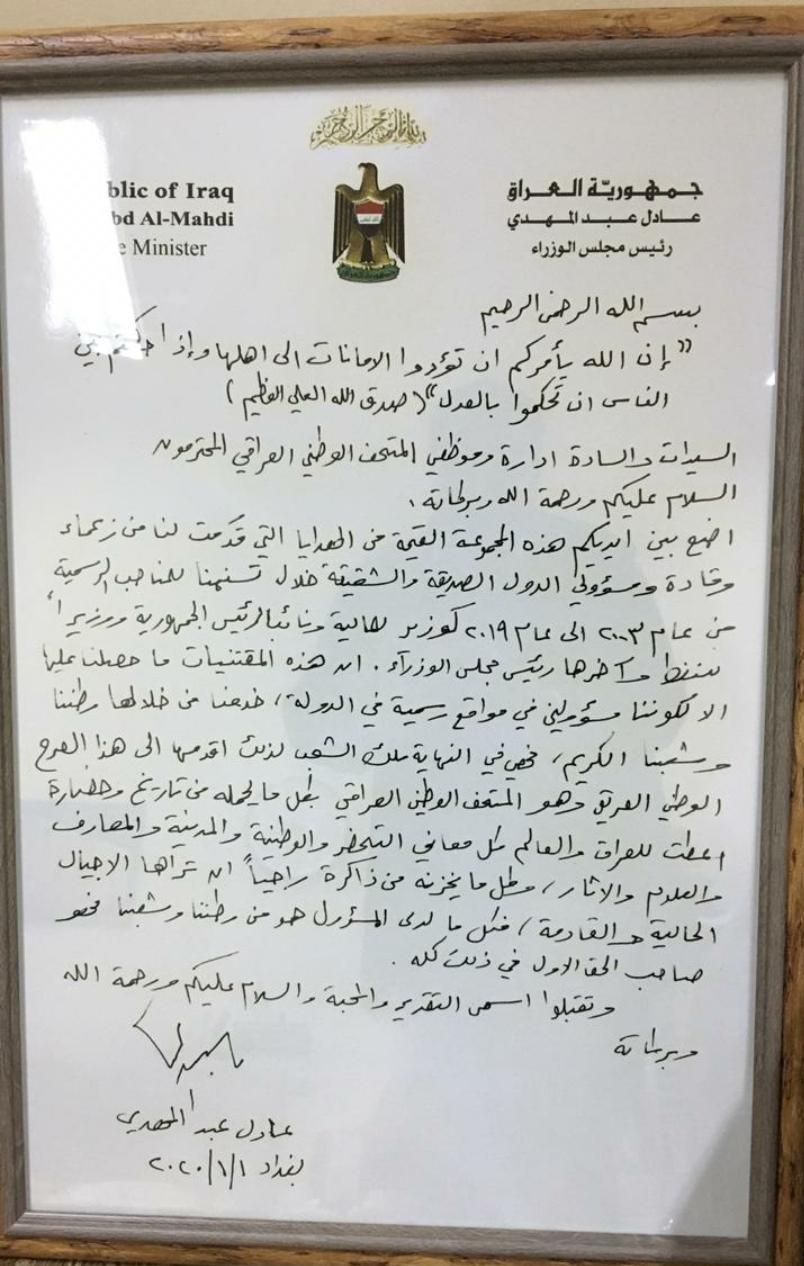 بسم الله الرحمن الرحيم
blic of Iraq
bd Al-Mahdi
e Minister
جمهورية العراق
عادل عبد المهدي
رئيس مجلس الوزراء
بسم الله الرحمن الرحيم
"إن الله يأمركم ان تؤدوا الامانات الى اهلها وإذا حكمتم بين
الناس ان تحكموا بالعدل" (صدق الله العلي العظيم)
السيدات والسادة ادارة وموظفي المتحف الوطني العراقي المحترمون
السلام عليكم ورحمة الله وبركاته،
اضع بين ايديكم هذه المجموعة القيمة من الهدايا التي قدمت لنا من زعماء
وقادة ومسؤولي الدول الصديقة والشقيقة خلال تسنمنا للمناصب الرسمية
من عام ٢٠٠٣ الى عام ٢٠١٩ كوزير لمالية ونائب لرئيس الجمهورية ووزيراً
للنفط وآخرها رئيس مجلس الوزراء. ان هذه المقتنيات ما حصلنا عليها
الا لكوننا مسؤولين في مواقع رسمية في الدولة، خدمنا من خلالها وطننا
وشعبنا الكريم، فهي في النهاية ملك الشعب لذلك اقدمها الى هذا الصرح
الوطني العريق وهو المتحف الوطني العراقي بكل ما يحمله من تاريخ وحضارة
اعطت للعراق والعالم كل معاني التحضر والوطنية والمدنية والمعارف
والعلوم والاثار، وكل ما يخزنه من ذاكرة راجياً ان تراها الاجيال
الحالية والقادمة، فكل ما لدى المسؤول هو من وطننا وشعبنا فهو
صاحب الحق الاول في ذلك كله.
وتقبلوا اسمى التقدير والمحبة والسلام عليكم ورحمة الله
وبركاته
عادل عبد المهدي
بغداد ٢٠٢٠/١/١